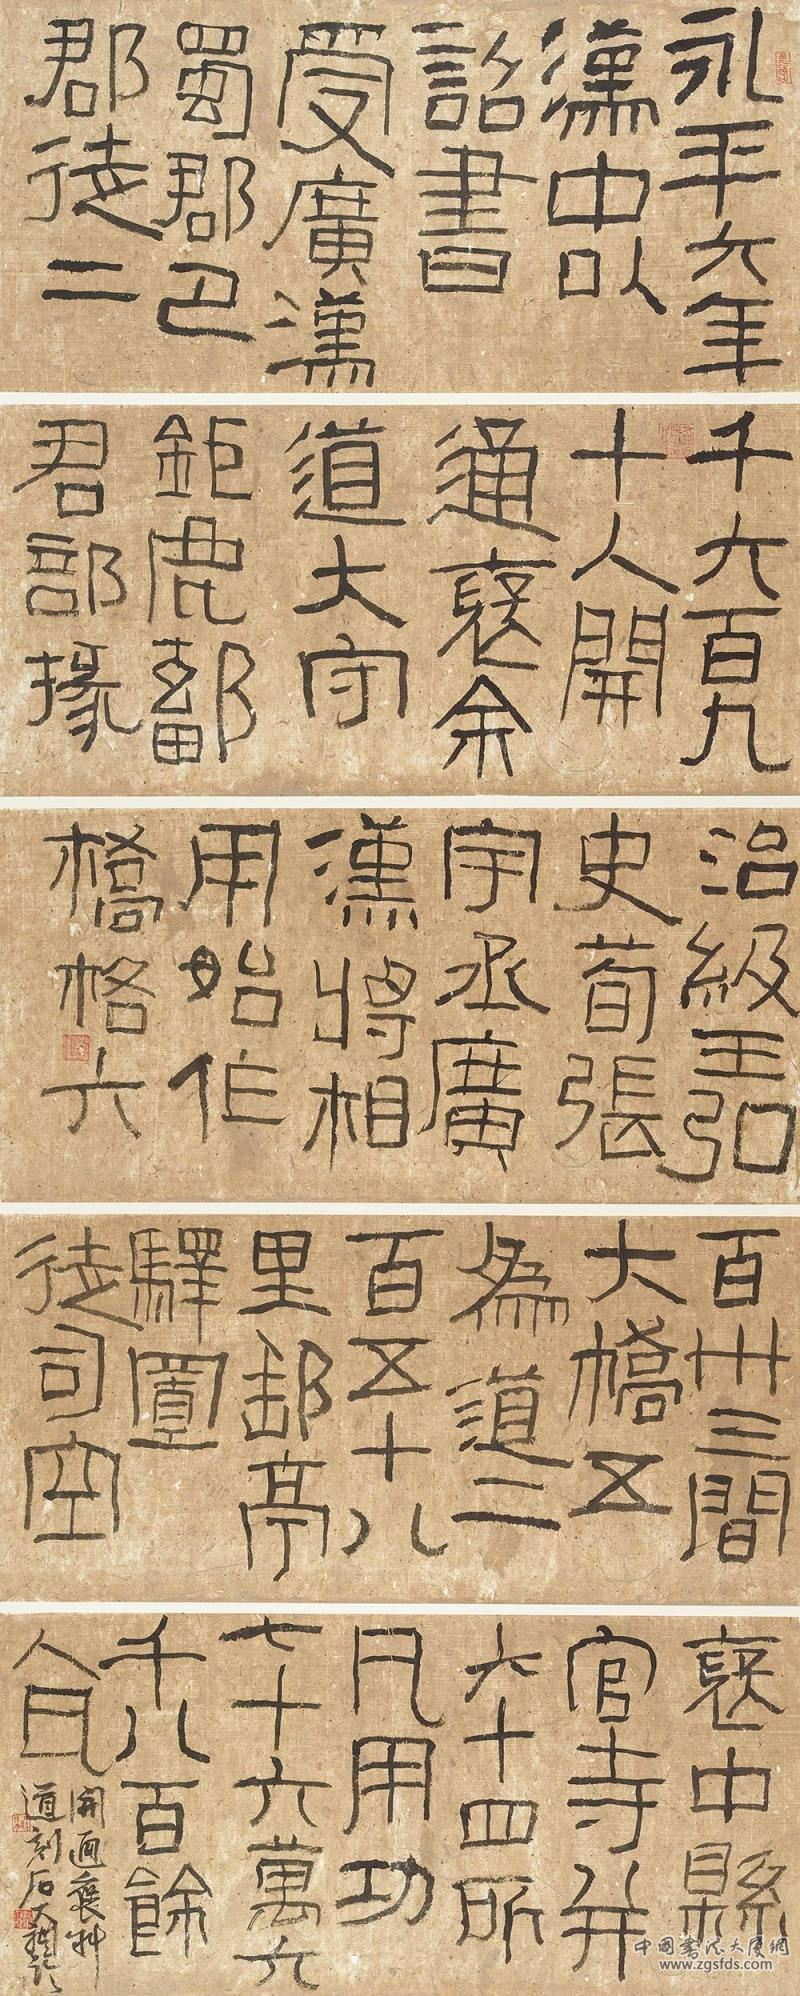 永平六年
漢中以
詔書
受廣漢
蜀郡巴
郡徒二
千六百九
十人開
通褒余
道大守
鉅鹿鄐
君部掾
治級王弘
史荀張
宇丞廣
漢將相
用始作
橋格六
百卅三間
大橋五
為道二
百五十八
里郵亭
驛置
徒司空
褒中縣
官寺并
六十四所
凡用功
七十六萬六
千八百餘
人
開通褒斜
道刻石
中國書法大廈網
www.zgsfds.com